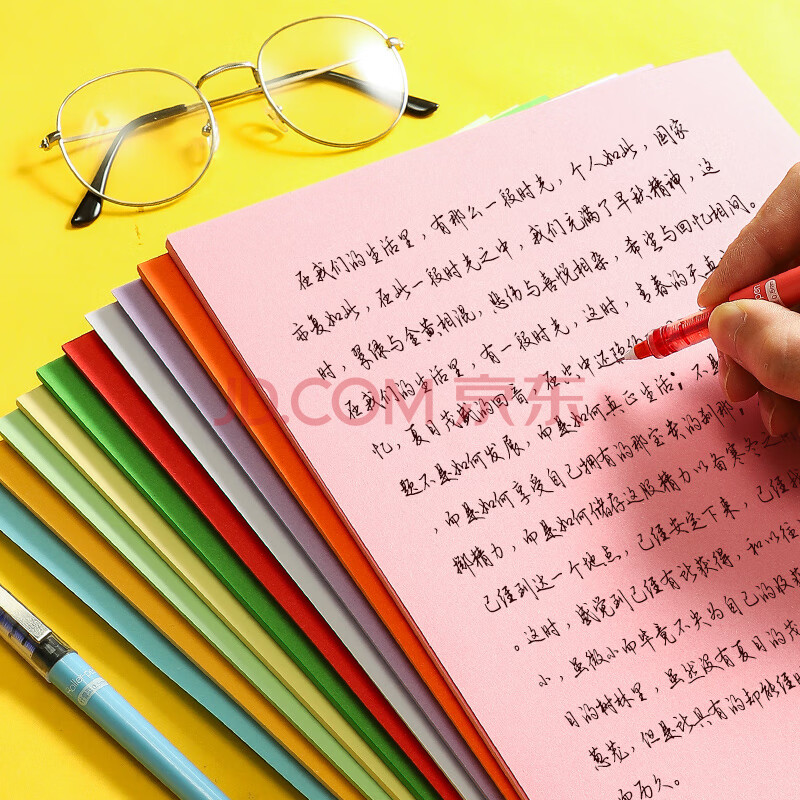 在我们的生活里，有那么一段时光，个人如此，国家
亦复如此，在此一段时光之中，我们充满了早秋精神，这
时，翠绿与金黄相混，悲伤与喜悦相杂，希望与回忆相间。
在我们的生活里，有一段时光，这时，青春的天真
忆，夏日茂盛的回音，在空中还隐约
JD.COM 京东
题不是如何发展，而是如何真正生活；不是
，而是如何享受自己拥有的那宝贵的刹那；
掷精力，而是如何储存这股精力以备寒冬之
已经到达一个地点，已经安定下来，已经
。这时，感觉到已经有所获得，和以往
小，虽微小而毕竟不失为自己的收获
日的树林里，虽然没有夏日的茂
葱茏，但是所具有的却能经时
而历久。
Roller